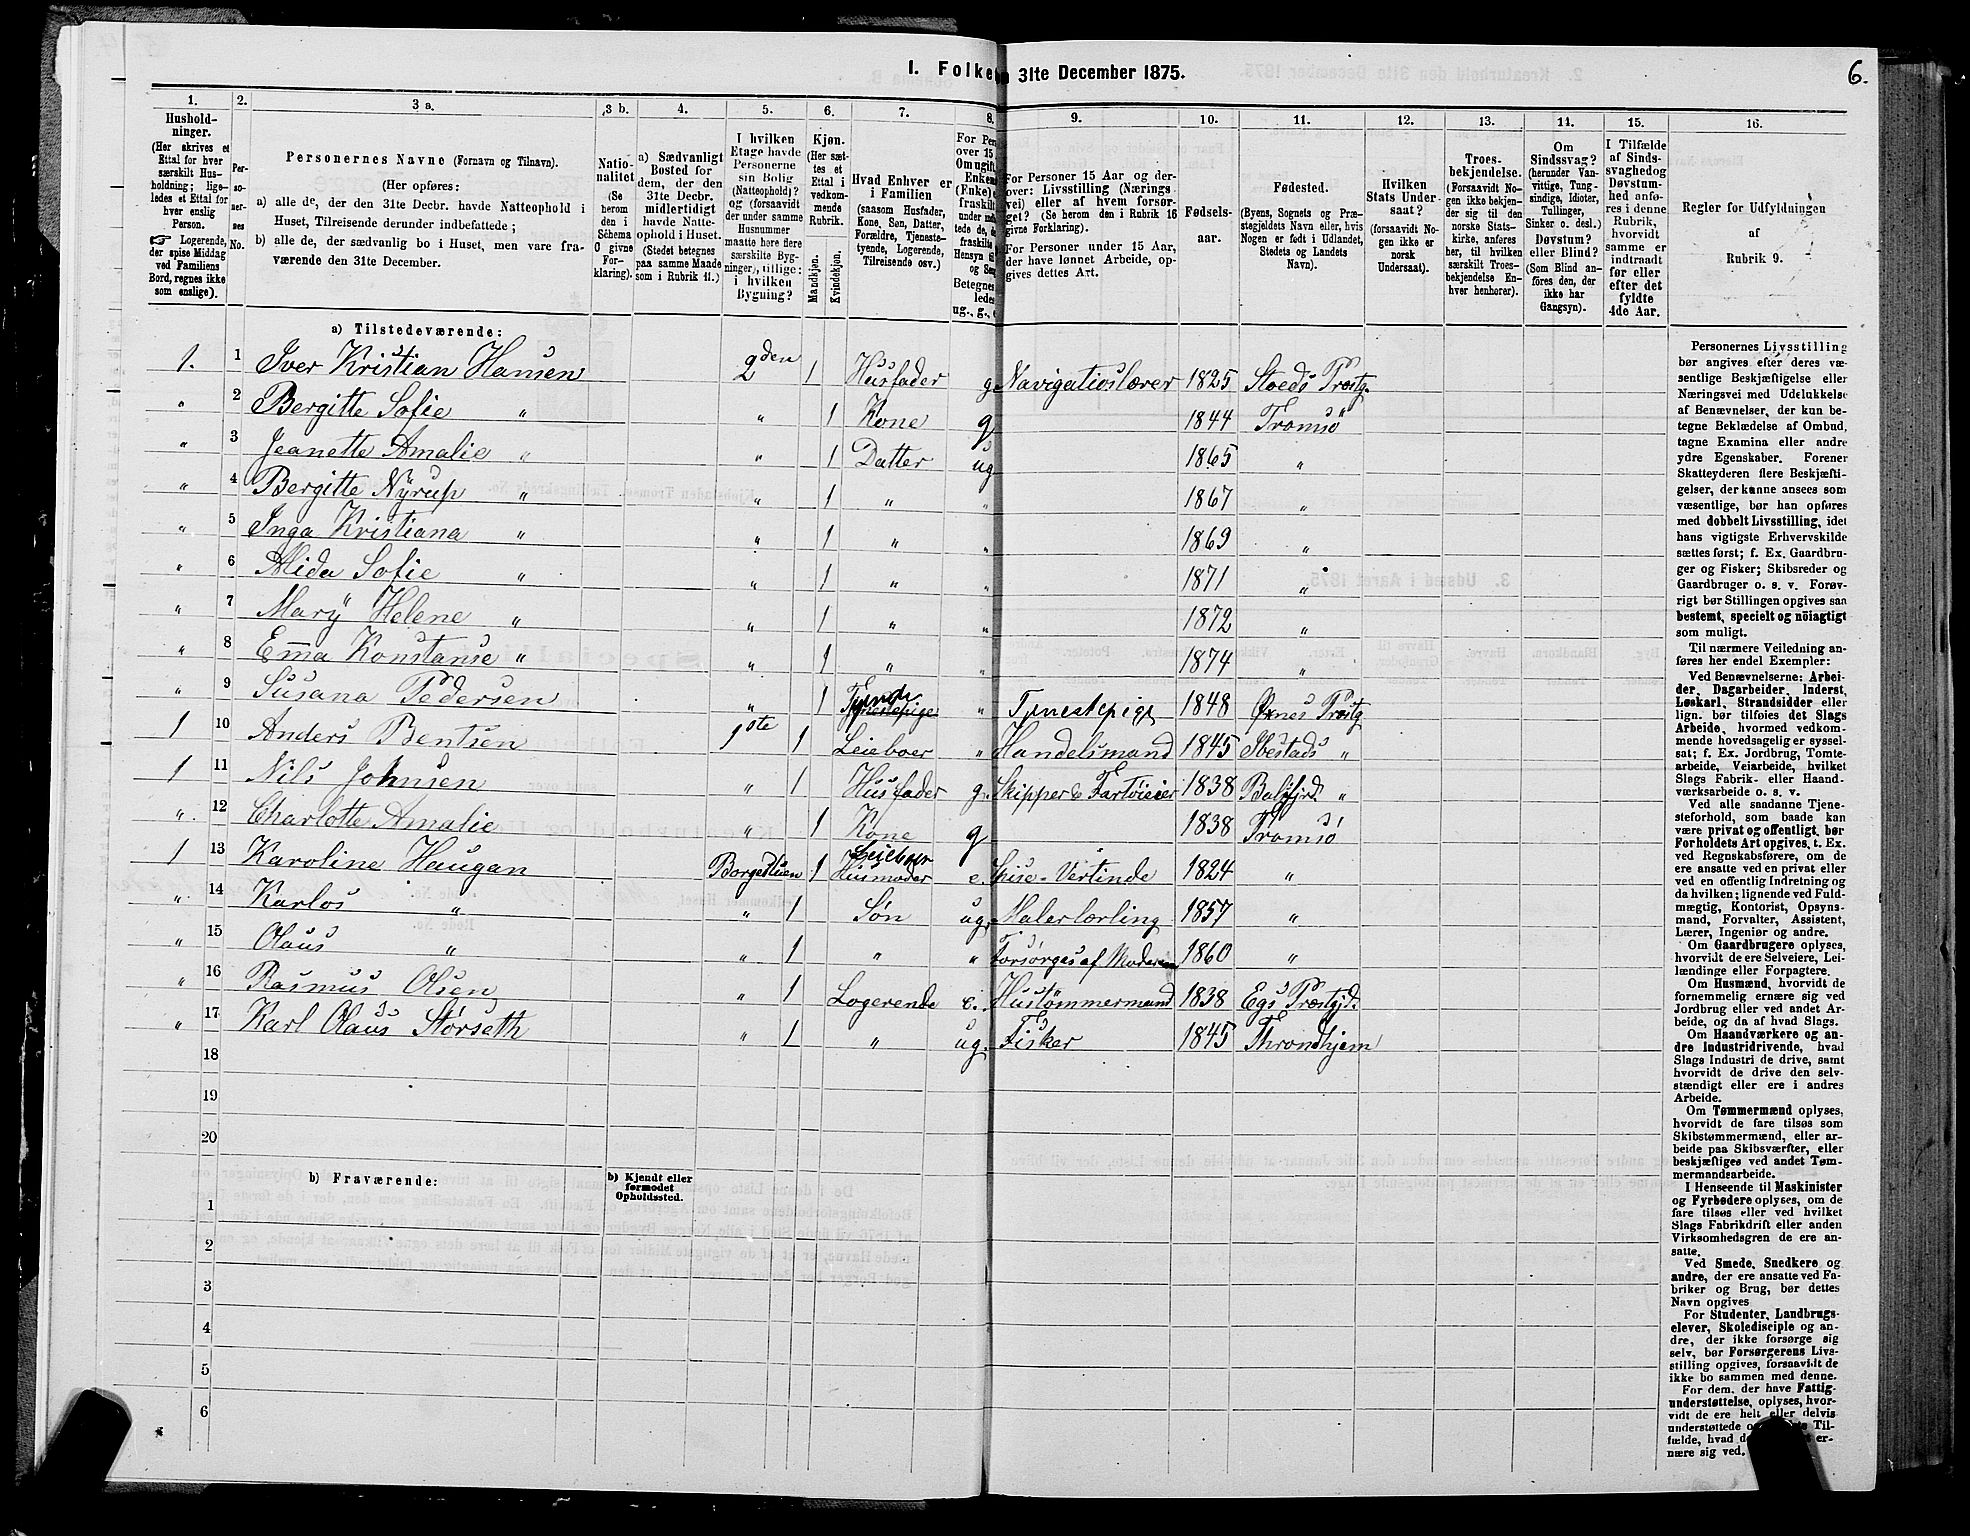 6.
1. Folke 31te December 1875.
1. 2. 3 a. 3 b. 4. 5. 6. 7. 8. 9. 10. 11. 12. 13. 14. 15. 16.
Hushold-
ninger.
(Her skrives et
Ettal for hver
særskilt Hus-
holdning; lige-
ledes et Ettal for
hver enslig
Person.
☞ Logerende,
der spise Middag
ved Familiens
Bord, regnes ikke
som enslige).
Per-
so-
ner-
nes
No.
Personernes Navne (Fornavn og Tilnavn).
(Her opføres:
a) alle de, der den 31te Decbr. havde Natteophold i
Huset, Tilreisende derunder indbefattede;
b) alle de, der sædvanlig bo i Huset, men vare fra-
værende den 31te December.
Natio-
nalitet
(Se
herom
den i
Schema
O givne
For-
klaring).
a) Sædvanligt
Bosted for
dem, der den
31te Decbr.
midlertidigt
havde Natte-
ophold i Huset.
(Stedet betegnes
paa samme Maade
som i Rubrik 11.)
I hvilken
Etage havde
Personerne
sin Bolig
(Natteophold)?
og (forsaavidt
der under samme
Husnummer
maatte høre flere
særskilte Byg-
ninger), tillige:
i hvilken
Bygning?
Kjøn.
(Her sæt-
tes et
Ettal i
vedkom-
mende
Rubrik.
Mandkjøn.
Kvindekjøn.
Hvad Enhver er
i Familien
(saasom Husfader,
Kone, Søn, Datter,
Forældre, Tjeneste-
tyende, Logerende,
Tilreisende osv.)
For Per
over 15
Om ugift
Enkem
(Enke) e
fraskilt
under
tede de,
fraskilte
Hensyn til
og Sen
Betegnes
ledes
ug., g., e
For Personer 15 Aar og der-
over: Livsstilling (Nærings
vei) eller af hvem forsør-
get? (Se herom den i Rubrik 16
givne Forklaring).
For Personer under 15 Aar,
der have lønnet Arbeide, op-
gives dettes Art.
Fødsels-
aar.
Fødested.
(Byens, Sognets og Præ-
stegjeldets Navn eller, hvis
Nogen er født i Udlandet,
Stedets og Landets
Navn).
Hvilken
Stats Under-
saat?
(forsaavidt No-
gen ikke er
norsk
Undersaat).
Troes-
bekjendelse.
(Forsaavidt No-
gen ikke bekjen-
der sig til den
norske Stats-
kirke, anføres
her, til hvilken
særskilt Troes-
bekjendelse En-
hver henhører).
Om
Sindssvag?
(herunder Van-
vittige, Tung-
sindige, Idioter,
Tullinger,
Sinker o. desl.)
Døvstum?
eller Blind?
(Som Blind an-
føres den, der
ikke har
Gangsyn).
I Tilfælde
af Sinds-
svaghed og
Døvstum-
hed anfø-
res i denne
Rubrik,
hvorvidt
samme er
indtraadt
før eller
efter det
fyldte
4de Aar.
Regler for Udfyldningen
af
Rubrik 9.
a) Tilstedeværende:
1. 1 Iver Kristian Hansen 2den 1 Husfader g Navigationslærer 1825 Stoeds Prstg.
" 2 Bergitte Sofie " " 1 Kone g 1844 Tromsö
" 3 Jeanette Amalie " " 1 Datter ug 1865 "
" 4 Bergitte Nyrup " " 1 " " 1867 "
" 5 Inga Kristiana " " 1 " " 1869 "
" 6 Alida Sofie " " 1 " " 1871 "
" 7 Mary Helene " " 1 " " 1872 "
" 8 Emma Konstanse " " 1 " " 1874 "
" 9 Susana Pedersen " 1 Tyende Tjenestepige " Tjenestepige 1848 Øxnes Prstg
1 10 Anders Bentsen 1ste 1 Leieboer " Handelsmand 1845 Ibestads "
1 11 Nils Johnsen " 1 Husfader g. Skipper & Fartøieier 1838 Balsfjrd. "
" 12 Charlotte Amalie " 1 Kone g 1838 Tromsö
1 13 Karoline Haugan Borgestuen 1 Leieboer Husmoder e. Spise-Vertinde 1824 "
" 14 Karlos " " 1 Søn ug. Malerlærling 1857 "
" 15 Olaus " " 1 " " Forsørges af Moderen 1860 "
" 16 Rasmus Olsen " 1 Logerende e. Hustømmermand 1838 Egs Præstgjd.
" 17 Karl Olaus Störseth " 1 " ug. Fisker 1845 Throndhjem
18
19
20
b) Fraværende:
b) Kjendt eller
formodet
Opholdssted.
1
2
3
4
5
6
Personernes Livsstilling
bør angives efter deres væ-
sentlige Beskjæftigelse eller
Næringsvei med Udelukkelse
af Benævnelser, der kun be-
tegne Beklædelse af Ombud,
tagne Examina eller andre
ydre Egenskaber. Forener
Skatteyderen flere Beskjæfti-
gelser, der kunne ansees som
væsentlige, bør han opføres
med dobbelt Livsstilling, idet
hans vigtigste Erhvervskilde
sættes først; f. Ex. Gaardbru-
ger og Fisker; Skibsreder og
Gaardbruger o. s. v. Forøv-
rigt bør Stillingen opgives saa
bestemt, specielt og nöiagtigt
som muligt.
Til nærmere Veiledning an-
føres her endel Exempler:
Ved Benævnelserne: Arbei-
der, Dagarbeider, Inderst,
Løskarl, Strandsidder eller
lign. bør tilføies det Slags
Arbeide, hvormed vedkom-
mende hovedsagelig er syssel-
sat; f. Ex. Jordbrug, Tomte-
arbeide, Veiarbeide, hvilket
Slags Fabrik- eller Haand-
værksarbeide o. s. v.
Ved alle saadanne Tjene-
steforhold, som baade kan
være privat og offentligt, bør
Forholdets Art opgives, t. Ex.
ved Regnskabsførere, om de
ere ansatte ved en privat eller
ved en offentlig Indretning og
da hvilken; lignende ved Fuld-
mægtig, Kontorist, Opsyns-
mand, Forvalter, Assistent,
Lærer, Ingeniør og andre.
Om Gaardbrugere oplyses,
hvorvidt de ere Selveiere, Lei-
lændinge eller Forpagtere.
Om Husmænd, hvorvidt de
fornemmelig ernære sig ved
Jordbrug eller ved andet Ar-
beide, og da af hvad Slags.
Om Haandværkere og an-
dre Industridrivende, hvad
Slags Industri de drive, samt
hvorvidt de drive den selv-
stændigt eller ere i andres
Arbeide.
Om Tømmermænd oplyses,
hvorvidt de fare tilsøs som
Skibstømmermænd, eller ar-
beide paa Skibsværfter, eller
beskjæftiges ved andet Tøm-
mermandsarbeide.
I Henseende til Maskinister
og Fyrbødere oplyses, om de
fare tilsøs eller ved hvilket
Slags Fabrikdrift eller anden
Virksomhedsgren de ere an-
satte.
Ved Smede, Snedkere og
andre, der ere ansatte ved Fa-
briker og Brug, bør dettes
Navn opgives
For Studenter, Landbrugs-
elever, Skoledisciple og an-
dre, der ikke forsørge sig
selv, bør Forsørgerens Livs-
stilling opgives, forsaavidt de
ikke bo sammen med denne.
For dem, der have Fattig-
understøttelse, oplyses, hvor-
vidt de ere helt eller delvis
understøttede Til-
fælde, hvad er-
nære sig ved.